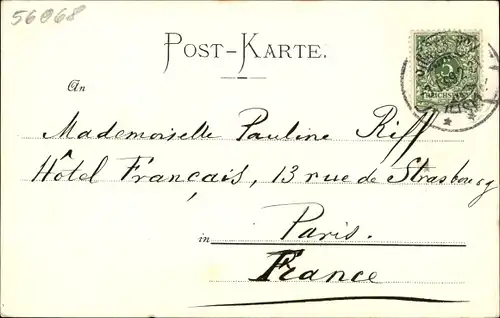 56068
POST-KARTE.
An
Mademoiselle Pauline Riff
Hôtel Français, 13 rue de Strasbourg
in Paris.
France
5
REICHSPOST